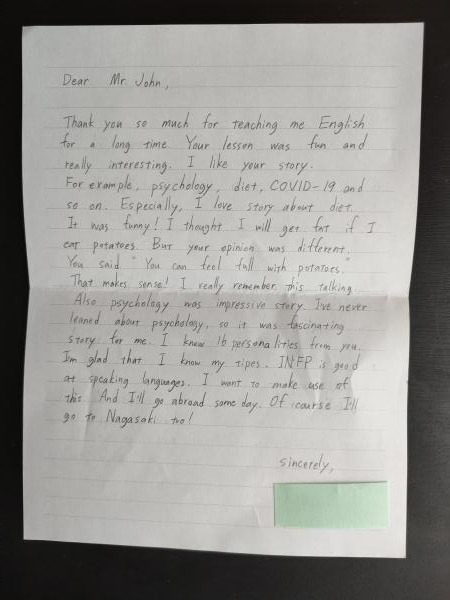 Dear Mr. John,
Thank you so much for teaching me English
for a long time. Your lesson was fun and
really interesting. I like your story.
For example, psychology, diet, COVID-19 and
so on. Especially, I love story about diet.
It was funny! I thought I will get fat if I
eat potatoes. But your opinion was different.
You said "You can feel full with potatoes."
That makes sense! I really remember this talking
Also psychology was impressive story. I've never
leaned about psychology, so it was fascinating
story for me. I know 16 personalities from you.
I'm glad that I know my tipes. INFP is good
at speaking languages. I want to make use of
this And I'll go abroad some day. Of course I'll
go to Nagasaki too!
sincerely,